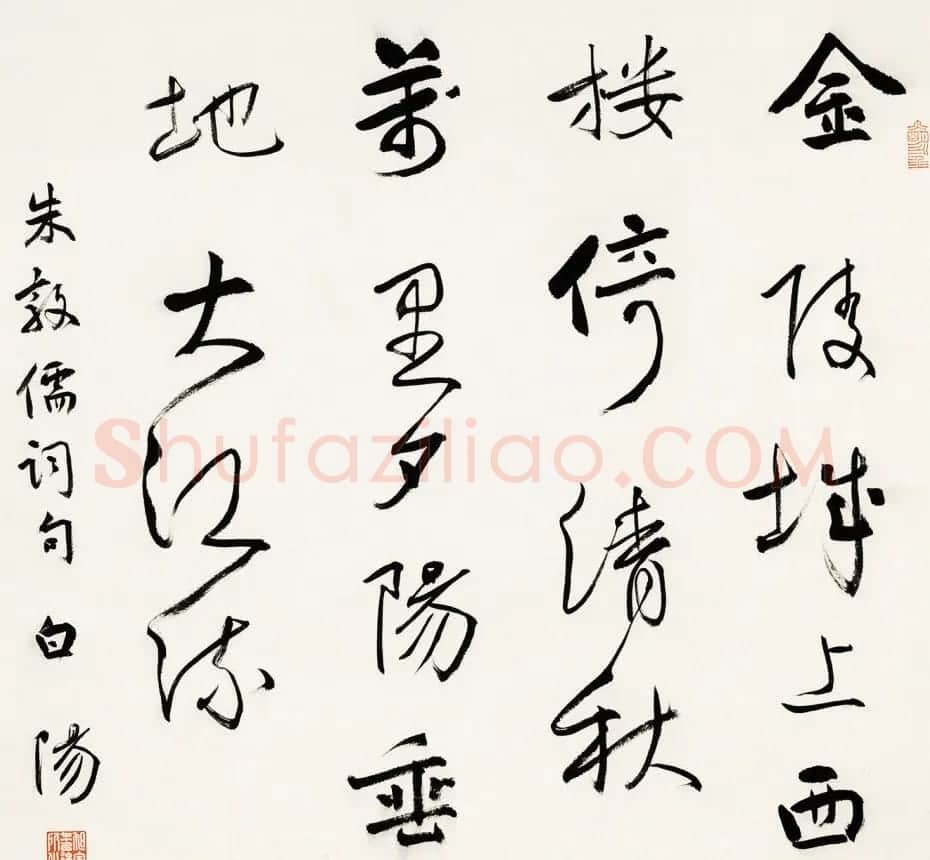 金陵城上西
楼倚清秋
萬里夕陽垂
地大江流
朱敦儒词句 白陽
Shufaziliao.COM